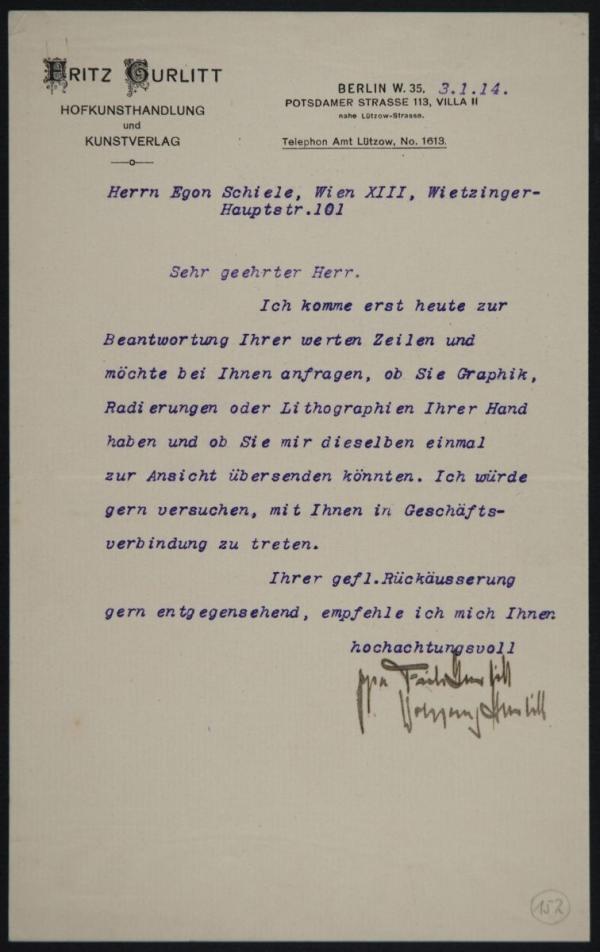 FRITZ GURLITT
HOFKUNSTHANDLUNG
und
KUNSTVERLAG
BERLIN W. 35, 3.1.14.
POTSDAMER STRASSE 113, VILLA II
nahe Lützow-Strasse.
Telephon Amt Lützow, No. 1613.
Herrn Egon Schiele, Wien XIII, Wietzinger-
Hauptstr.101
Sehr geehrter Herr.
Ich komme erst heute zur
Beantwortung Ihrer werten Zeilen und
möchte bei Ihnen anfragen, ob Sie Graphik,
Radierungen oder Lithographien Ihrer Hand
haben und ob Sie mir dieselben einmal
zur Ansicht übersenden könnten. Ich würde
gern versuchen, mit Ihnen in Geschäfts-
verbindung zu treten.
Ihrer gefl.Rückäusserung
gern entgegensehend, empfehle ich mich Ihnen
hochachtungsvoll
ppa Fritz Gurlitt
Wolfgang Gurlitt
152